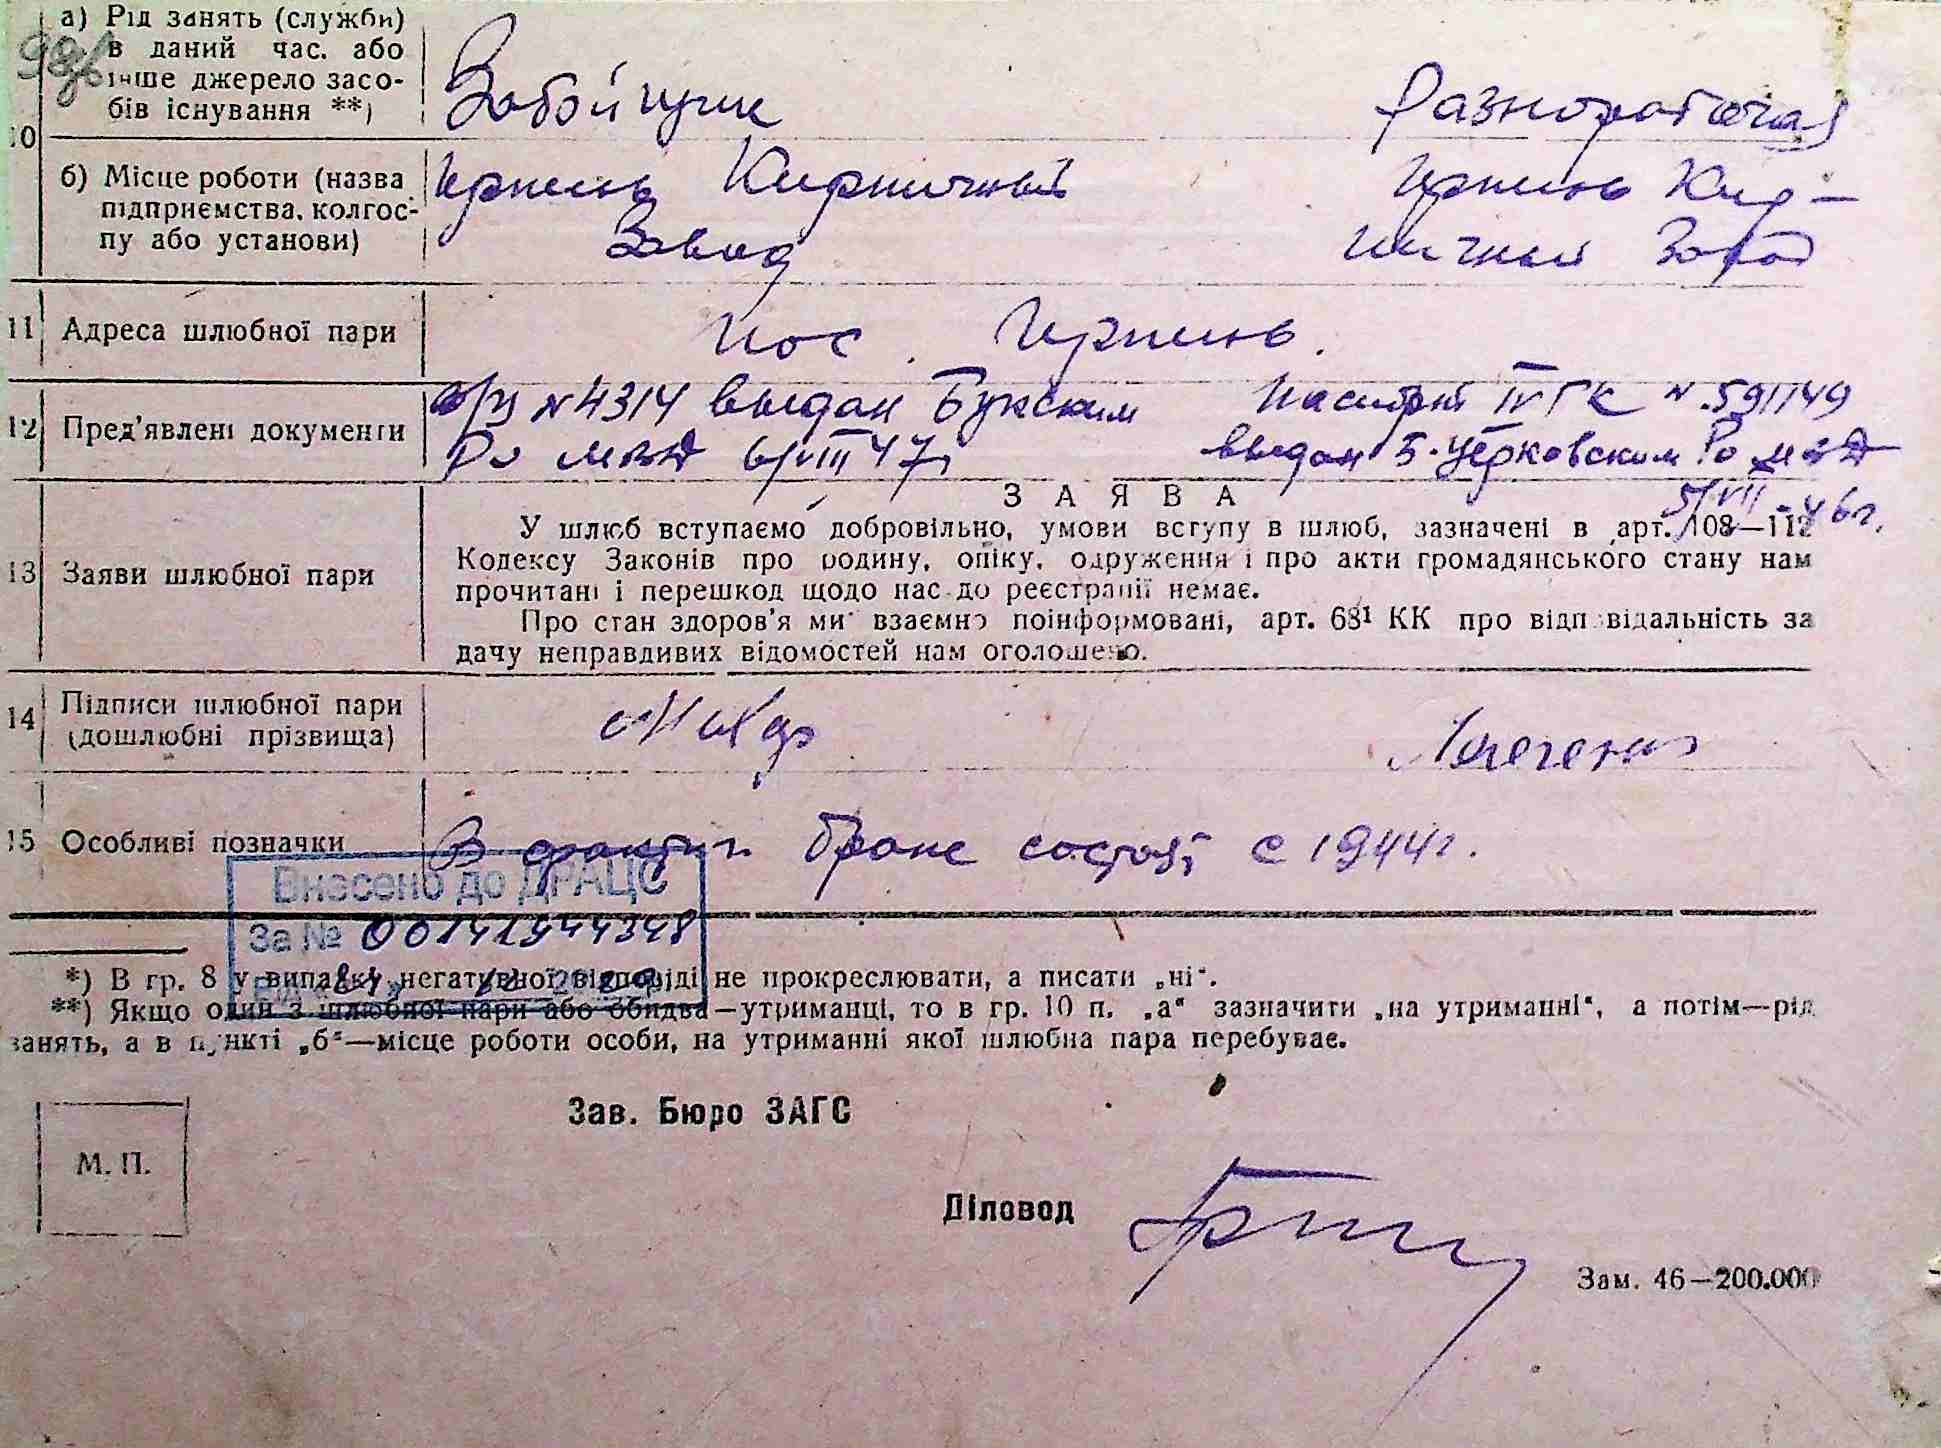 а) Рід занять (служби)
в даний час. або
інше джерело засо-
бів існування **)
Забойщик
Разнорабочая
10
б) Місце роботи (назва
підприємства, колгос-
пу або установи)
Ирпень Кирпичный
Завод
Ирпень Кир-
пичный Завод
11 Адреса шлюбної пари
пос. Ирпень.
12 Пред'явлені документи
N 4314 выдан Букским
Ро МВД 6/VIII 47г
Паспорт IV ГК N. 591149
выдан Б-Церковским Ро МВД
5/VII-46г.
ЗАЯВА
13 Заяви шлюбної пари
У шлюб вступаємо добровільно, умови вступу в шлюб, зазначені в арт. 108—112
Кодексу Законів про родину, опіку, одруження і про акти громадянського стану нам
прочитані і перешкод щодо нас до реєстрації немає.
Про стан здоров'я ми взаємно поінформовані, арт. 68¹ КК про відповідальність за
дачу неправдивих відомостей нам оголошено.
14 Підписи шлюбної пари
(дошлюбні прізвища)
15 Особливі позначки
В фактич. браке состоят с 1944г.
Внесено до ДРАЦС
За № 00141944348
*) В гр. 8 у випадку негативної відповіді не прокреслювати, а писати „ні“.
**) Якщо один з шлюбної пари або обидва—утриманці, то в гр. 10 п. „а“ зазначити „на утриманні“, а потім—рід
занять, а в пункті „б“—місце роботи особи, на утриманні якої шлюбна пара перебуває.
Зав. Бюро ЗАГС
М. П.
Діловод
Зам. 46—200.000